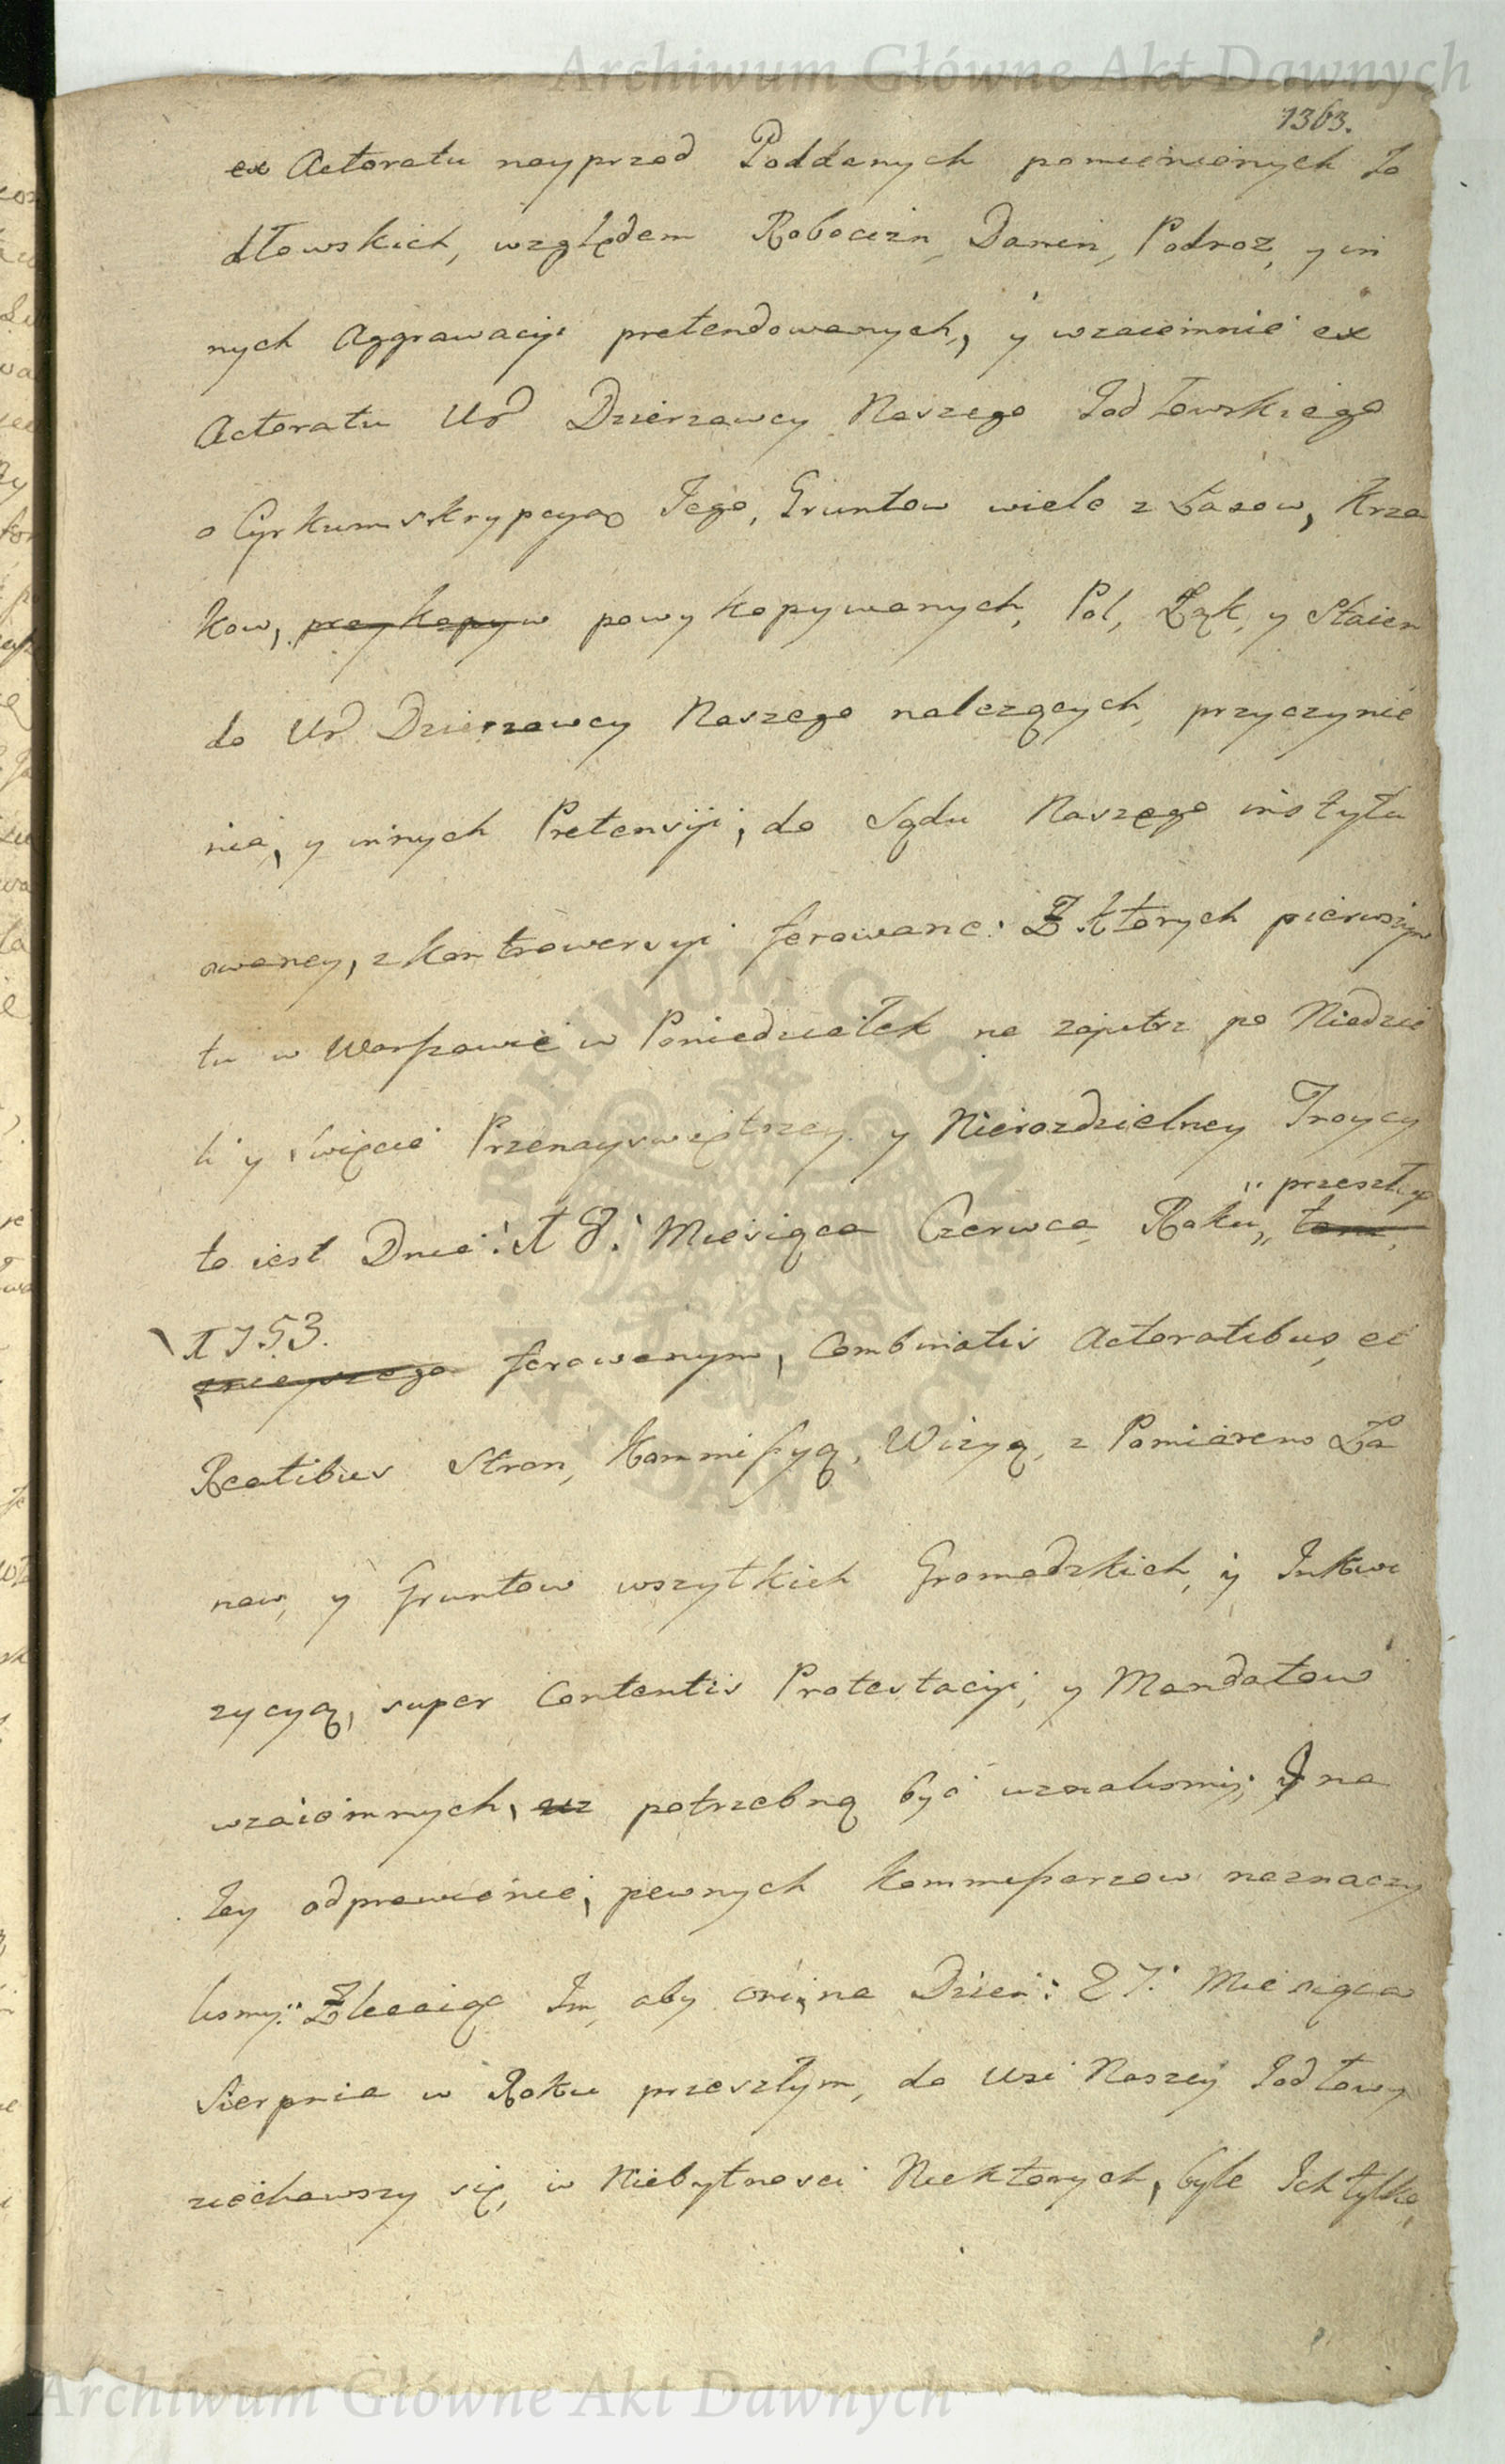 Archiwum Główne Akt Dawnych
1363.
ex Actoratu nayprzod Poddanych pomienionych Jo
dłowskich, względem Robocizn, Danin, Podroz, y in
nych Aggrawacyi pretendowanych, y wzaiemnie ex
Actoratu Ur Dzierzawcy Naszego Jodłowskiego
o Cyrkumskrypcyą Jego, Gruntow wiele z Lasow, Krza
kow, przykopyw powykopywanych, Pol, Łąk, y Staien
do Ur Dzierzawcy Naszego nalezących, przyczynie
nia, y innych Pretensyi, do Sądu Naszego instytu
owaney, z kontrowersyi ferowane: Z ktorych pierwszym
tu w Warszawie w Poniedziałek na zajutrz po Niedzie
li y święcie Przenayswiętszey y Nierozdzielney Troycy
przeszłego
to iest Dnia: 18: Miesiąca Czerwca Roku, teraz
1753.
znieyszego ferowanym, Combinatis Actoratibus et
Reatibus Stron, Kommissyą, Wizyą, z Pomiarem Ła
now, y Gruntow wszytkich Gromadzkich, y Inkwi
zycyą, super Contentis Protestacyi, y Mandatow
wzaiemnych, potrzebną być uznalismy; Y na
Jey odprawienie, pewnych Kommissarzow naznaczy
lismy: Zlecaiąc Im, aby oni, na Dzien: 27: Miesiąca
Sierpnia w Roku przeszłym, do Wsi Naszey Jodłowy
ziechawszy się, w Niebytnosci Niektorych, byle Ich tylko,
ARCHIWUM GŁÓWNE AKT DAWNYCH
Archiwum Główne Akt Dawnych